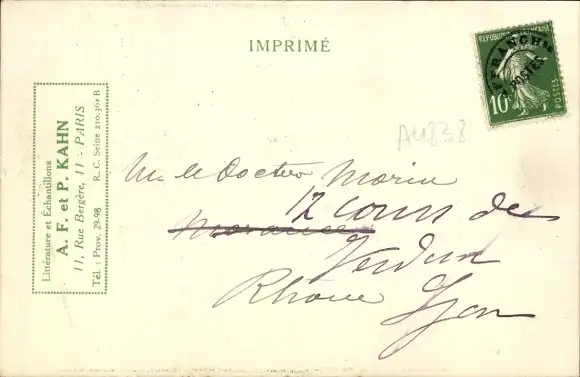 IMPRIMÉ
RÉPUBLIQUE FRANÇAISE
AFFRANCHts
POSTES
10c
POSTES
Littérature et Échantillons
A. F. et P. KAHN
11, Rue Bergère, 11 - PARIS
Tél. : Prov. 29-98 R. C. Seine 210.361 B
AU238
M. le Docteur Morin
12 cours de
Verdun
Rhône Lyon